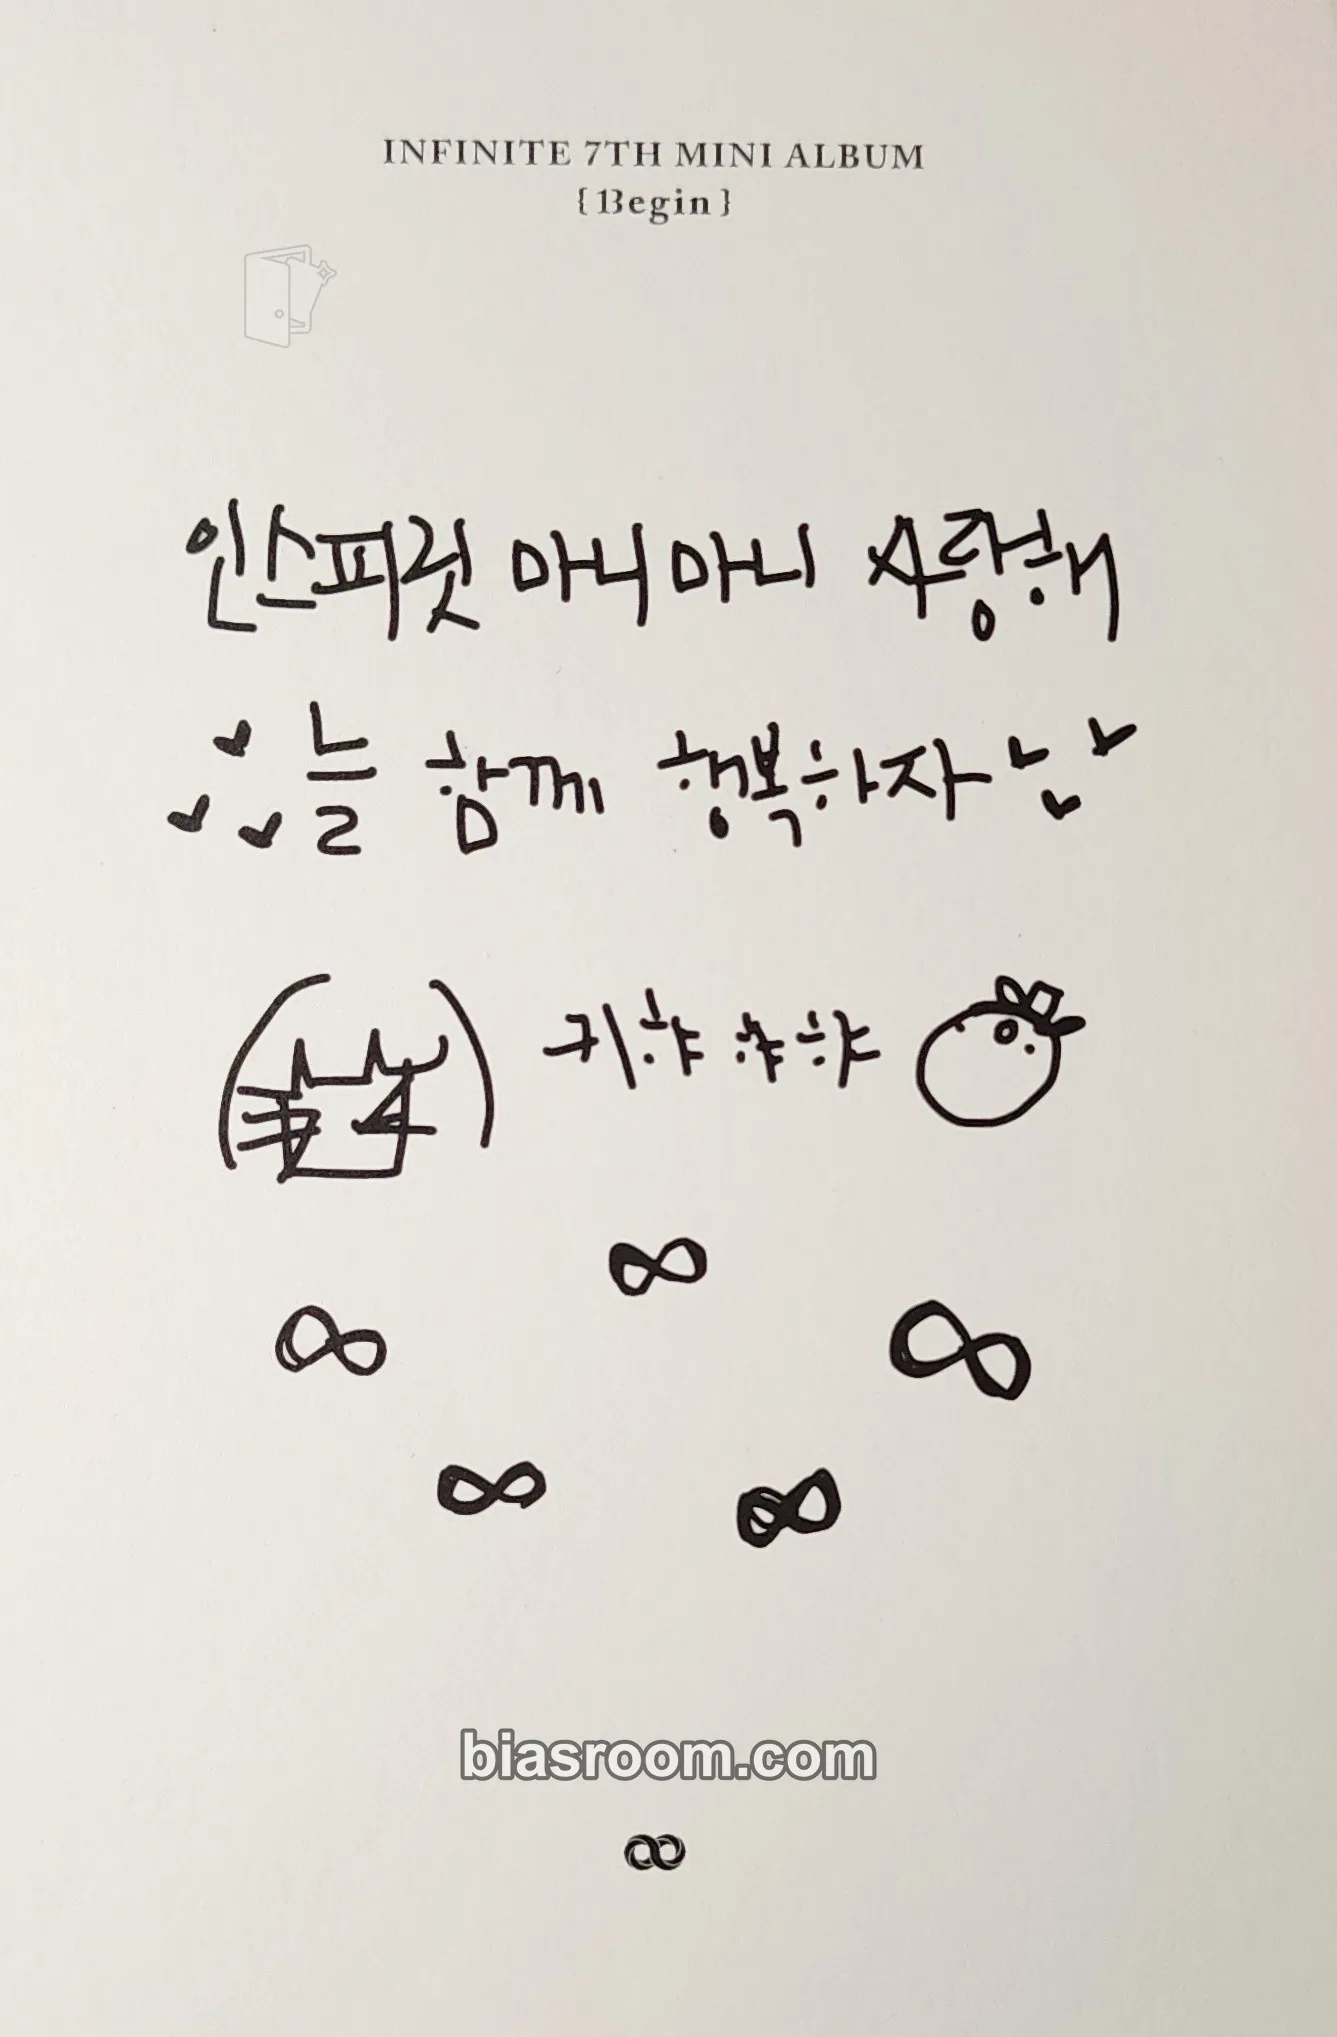 INFINITE 7TH MINI ALBUM
{13egin}
인스피릿 마니마니 사랑해
늘 함께 행복하자
키햐햐햐
biasroom.com